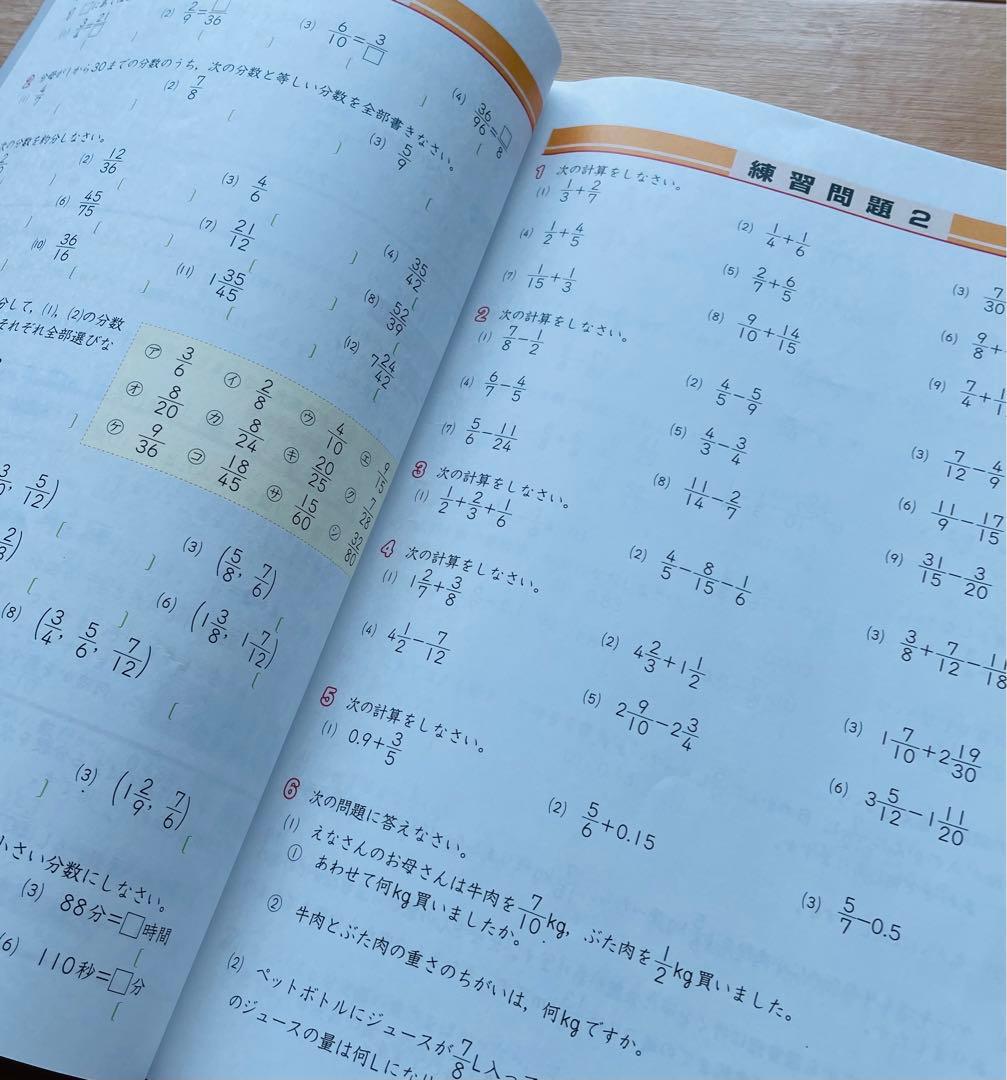 (2) 2/9=□/36
(3) 6/10=3/□
(4) 36/96=□/8
から30までの分数のうち，次の分数と等しい分数を全部書きなさい。
(2) 7/8
(3) 5/9
次の分数を約分しなさい。
(2) 12/36
(3) 4/6
(4) 35/42
(6) 45/75
(7) 21/12
(8) 52/39
(10) 36/16
(11) 1 35/45
(12) 7 24/42
分して，(1)，(2)の分数
それぞれ全部選びな
㋐ 3/6
㋑ 2/8
㋒ 4/10
㋓ 9/15
㋔ 8/20
㋕ 8/24
㋖ 20/25
㋗ 7/28
㋘ 9/36
㋙ 18/45
㋚ 15/60
㋛ 32/80
5/12)
(3) (5/8, 7/6)
(6) (1 3/8, 1 7/12)
(8) (3/4, 5/6, 7/12)
(3) (1 2/9, 7/6)
小さい分数にしなさい。
(3) 88分=□時間
(6) 110秒=□分
練習問題2
1 次の計算をしなさい。
(1) 1/3+2/7
(2) 1/4+1/6
(3) 7/30
(4) 1/2+4/5
(5) 2/7+6/5
(6) 9/8+
(7) 1/15+1/3
(8) 9/10+14/15
(9) 7/4+
2 次の計算をしなさい。
(1) 7/8-1/2
(2) 4/5-5/9
(3) 7/12-4/9
(4) 6/7-4/5
(5) 4/3-3/4
(6) 11/9-17/15
(7) 5/6-11/24
(8) 11/14-2/7
(9) 31/15-3/20
3 次の計算をしなさい。
(1) 1/2+2/3+1/6
(2) 4/5-8/15-1/6
(3) 3/8+7/12-11/18
4 次の計算をしなさい。
(1) 1 2/7+3/8
(2) 4 2/3+1 1/2
(3) 1 7/10+2 19/30
(4) 4 1/2-7/12
(5) 2 9/10-2 3/4
(6) 3 5/12-1 11/20
5 次の計算をしなさい。
(1) 0.9+3/5
(2) 5/6+0.15
(3) 5/7-0.5
6 次の問題に答えなさい。
(1) えなさんのお母さんは牛肉を7/10kg，ぶた肉を1/2kg買いました。
① あわせて何kg買いましたか。
② 牛肉とぶた肉の重さのちがいは，何kgですか。
(2) ペットボトルにジュースが7/8L入っ
のジュースの量は何Lにな